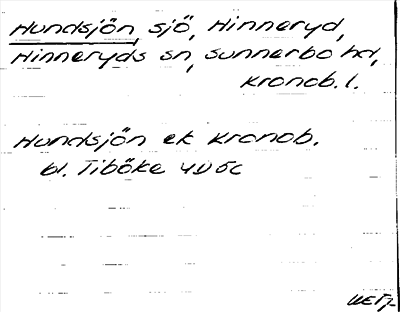 Hundsjön, sjö, Hinneryd,
Hinneryds sn, Sunnerbo hd,
Kronob. l.
Hundsjön ek Kronob.
bl. Tiböke 4D5c